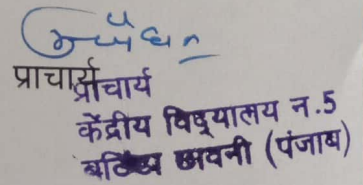 प्राचार्य
प्राचार्य
केंद्रीय विद्यालय न.5
बठिण्डा छावनी (पंजाब)